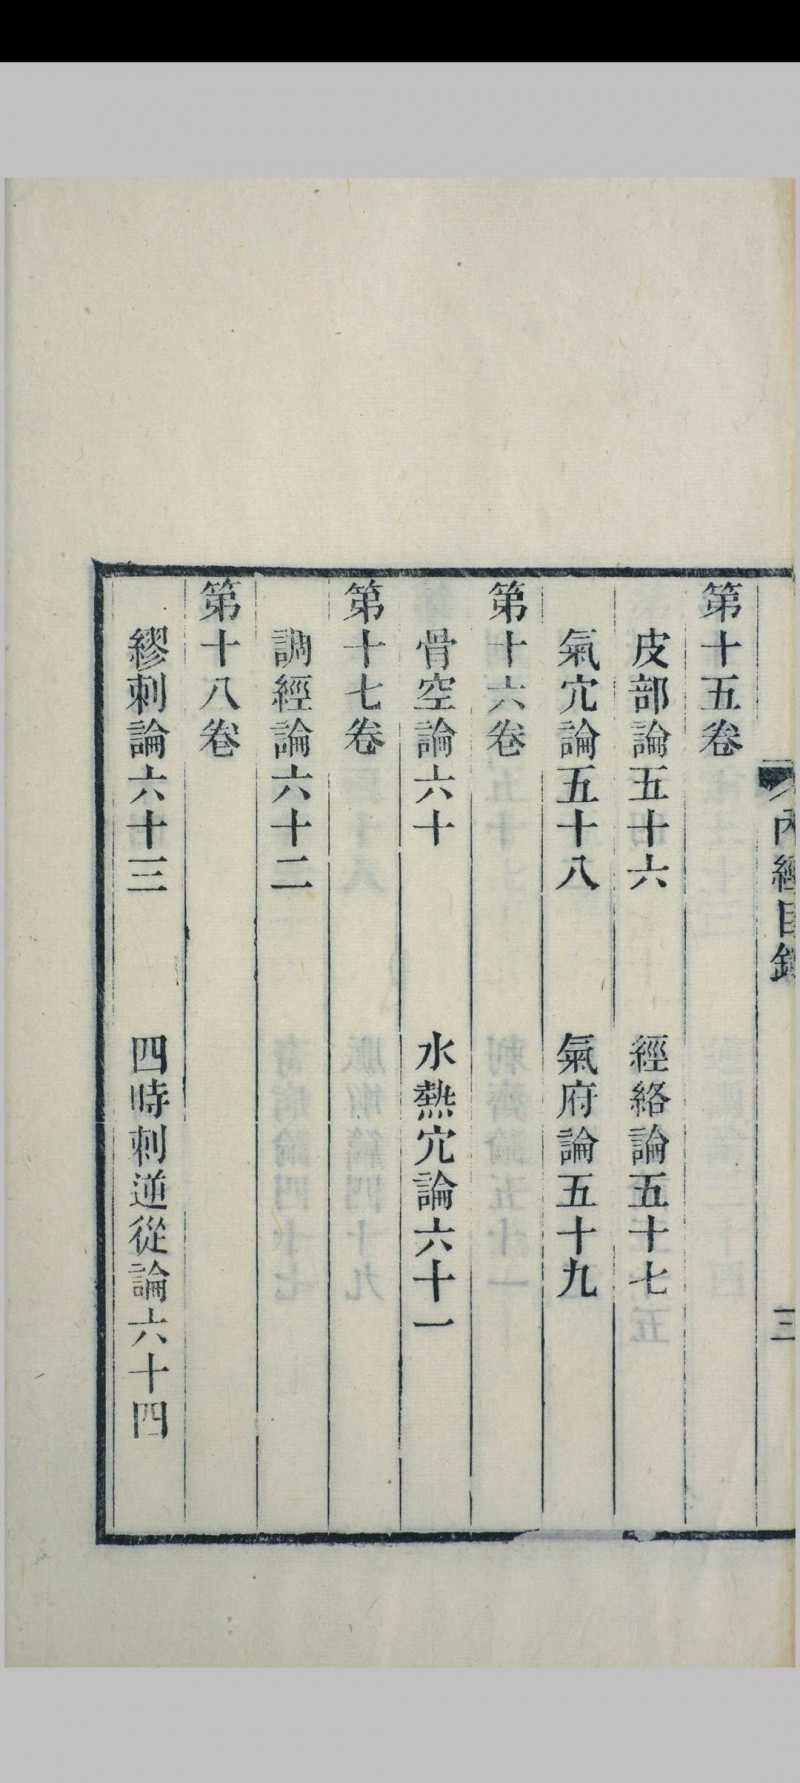 內經目錄
三
第十五卷
皮部論五十六　經絡論五十七
氣穴論五十八　氣府論五十九
第十六卷
骨空論六十　水熱穴論六十一
第十七卷
調經論六十二
第十八卷
繆刺論六十三　四時刺逆從論六十四